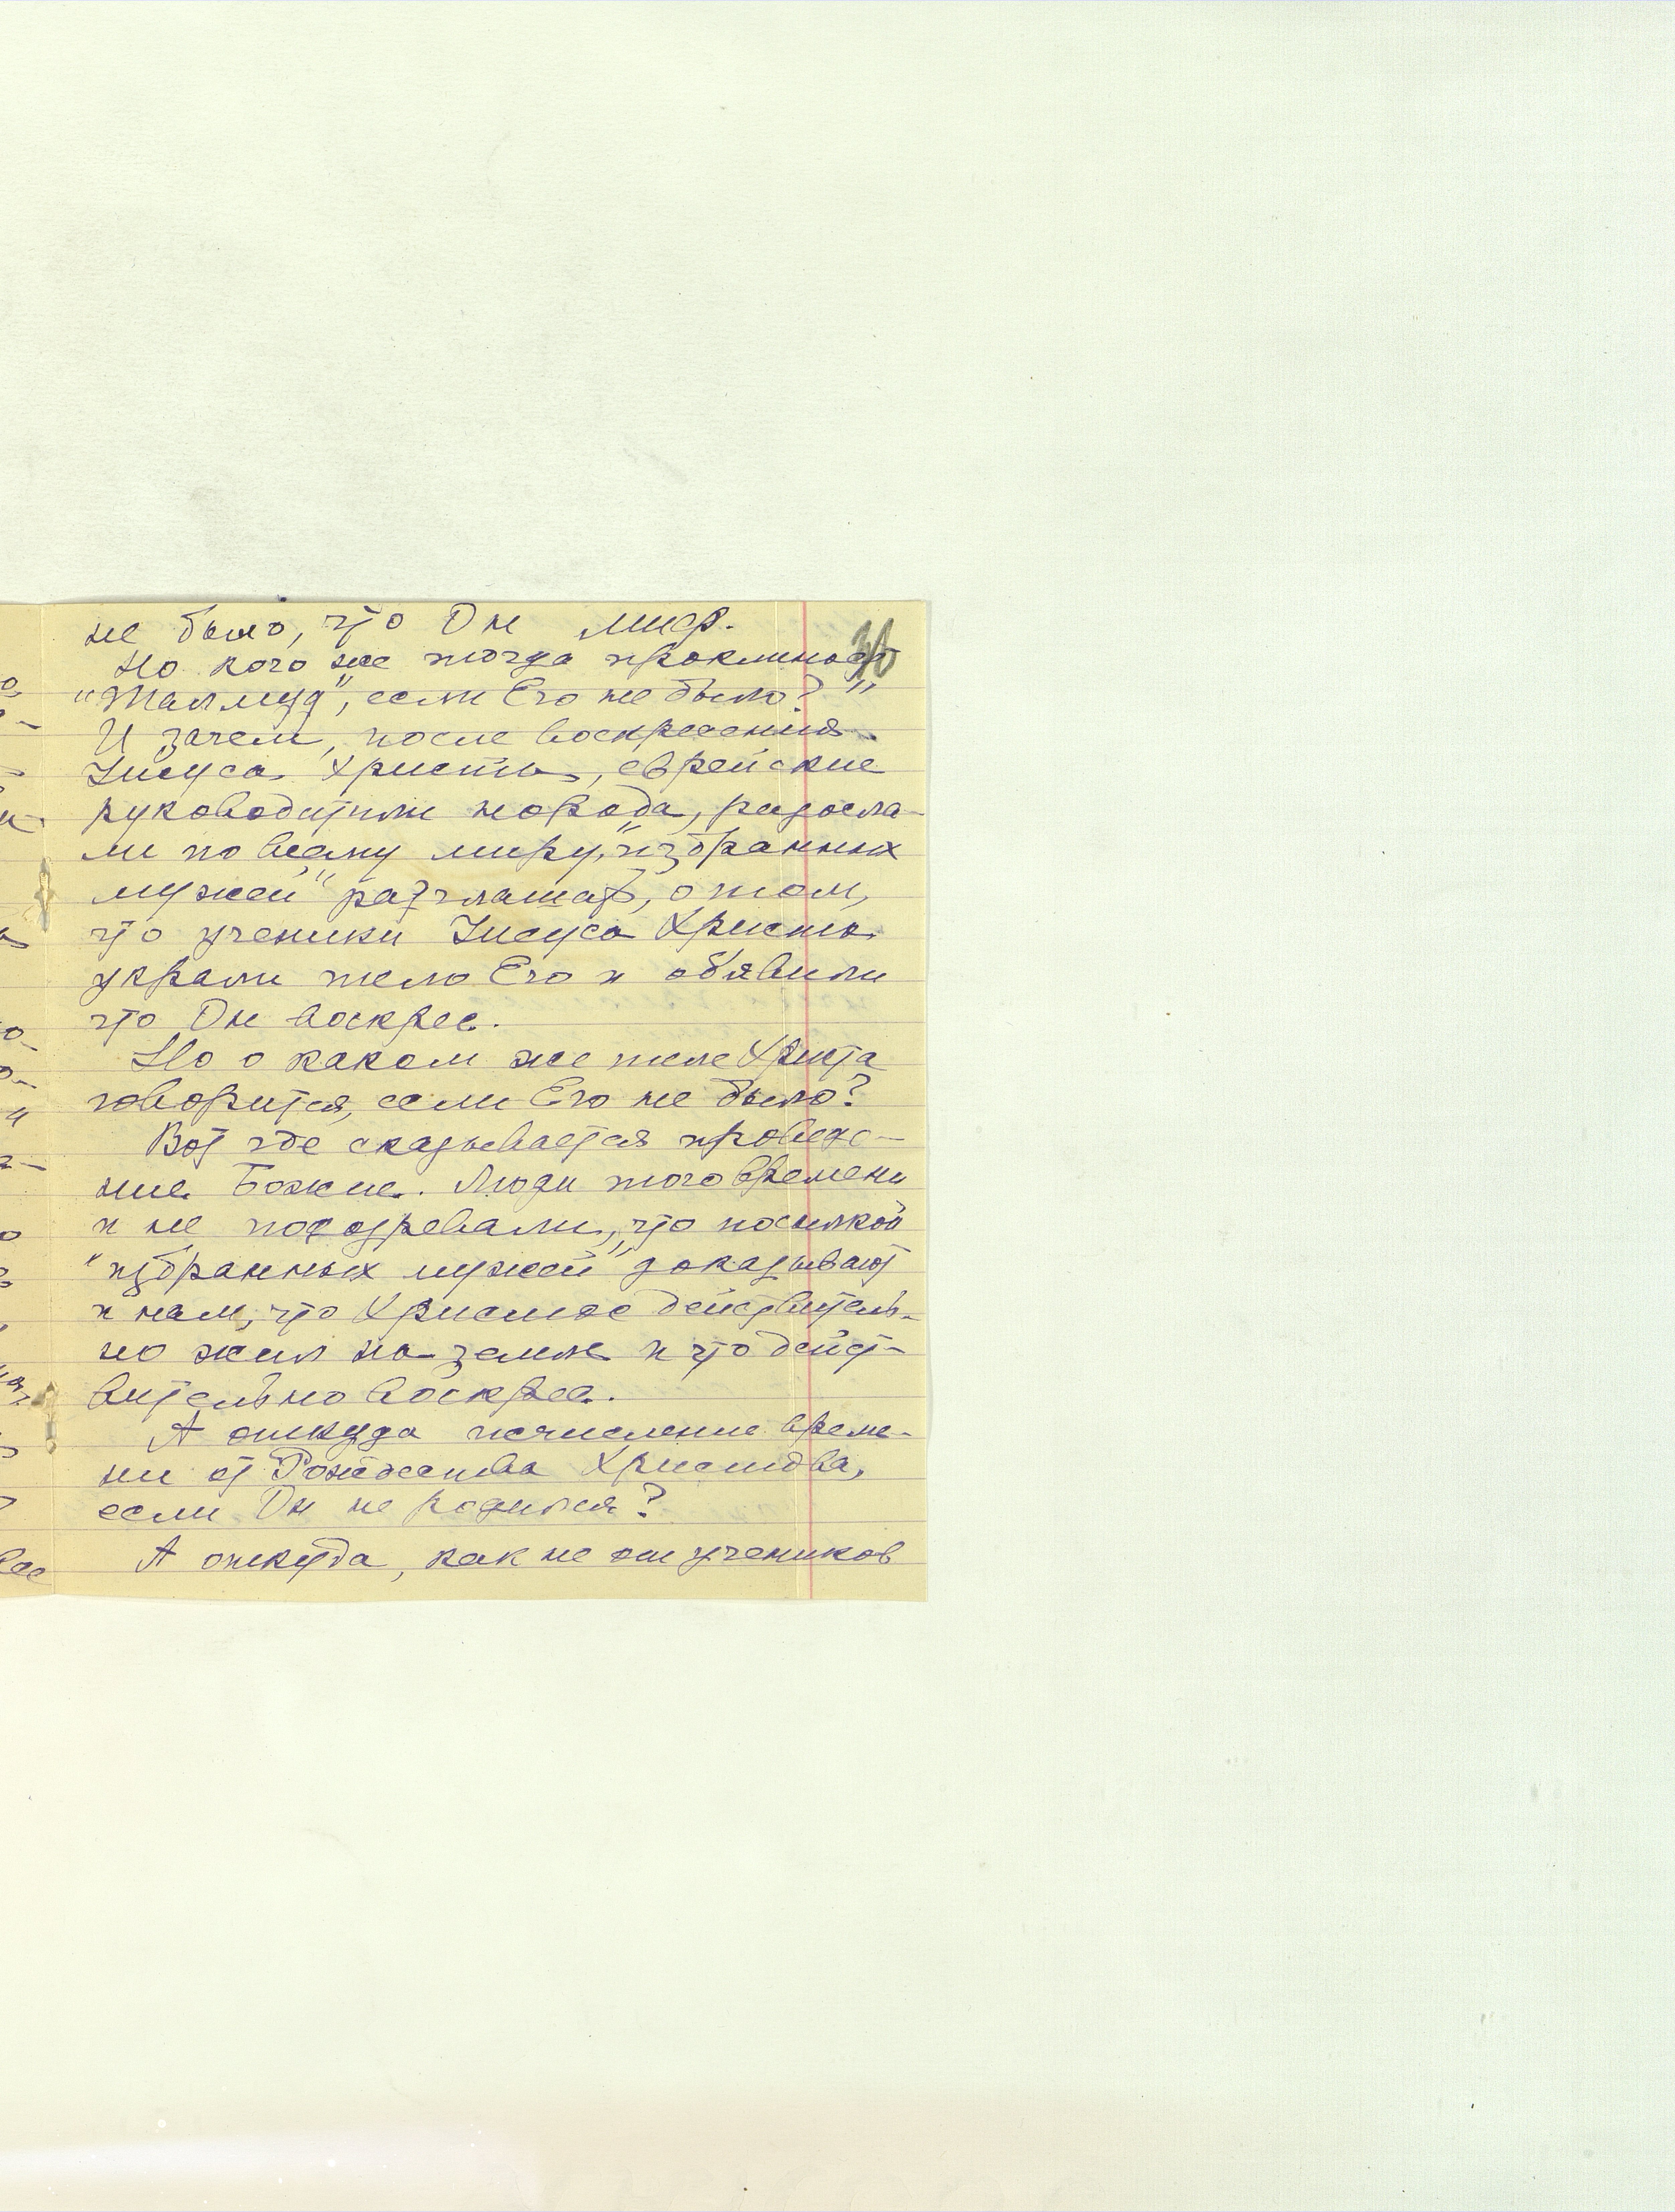 30
не было, что Он миф.
Но кого же тогда проклинает
"Талмуд", если Его не было?"
И зачем, после воскресения
Иисуса Христа, еврейские
руководители народа, разосла-
ли по всему миру, "избранных
мужей" разглашать, о том,
что ученики Иисуса Христа
украли тело Его и объявили
что Он воскрес.
Но о каком же теле Христа
говорится, если Его не было?
Вот где сказывается провиде-
ние Божие. Люди того времени
и не подозревали, что посылкой
"избранных мужей" доказывают
и нам, что Христос действитель-
но жил на земле и что дейст-
вительно воскрес.
А откуда исчисление време-
ни от Рождества Христова,
если Он не родился?
А откуда, как не от учеников